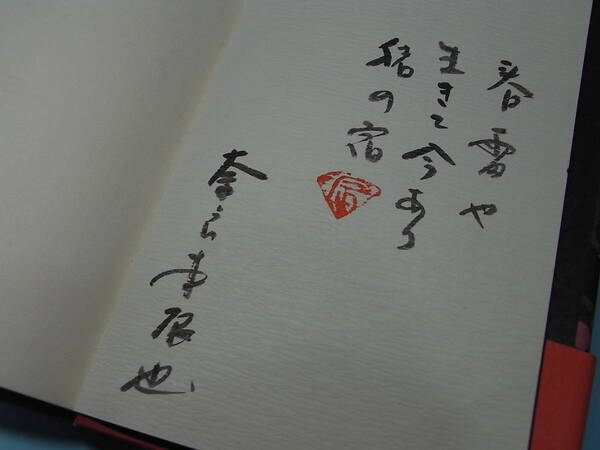 春雷や
生きて今あり
の宿
奈良本辰也